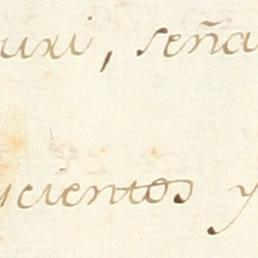 uxi, seña
cientos y